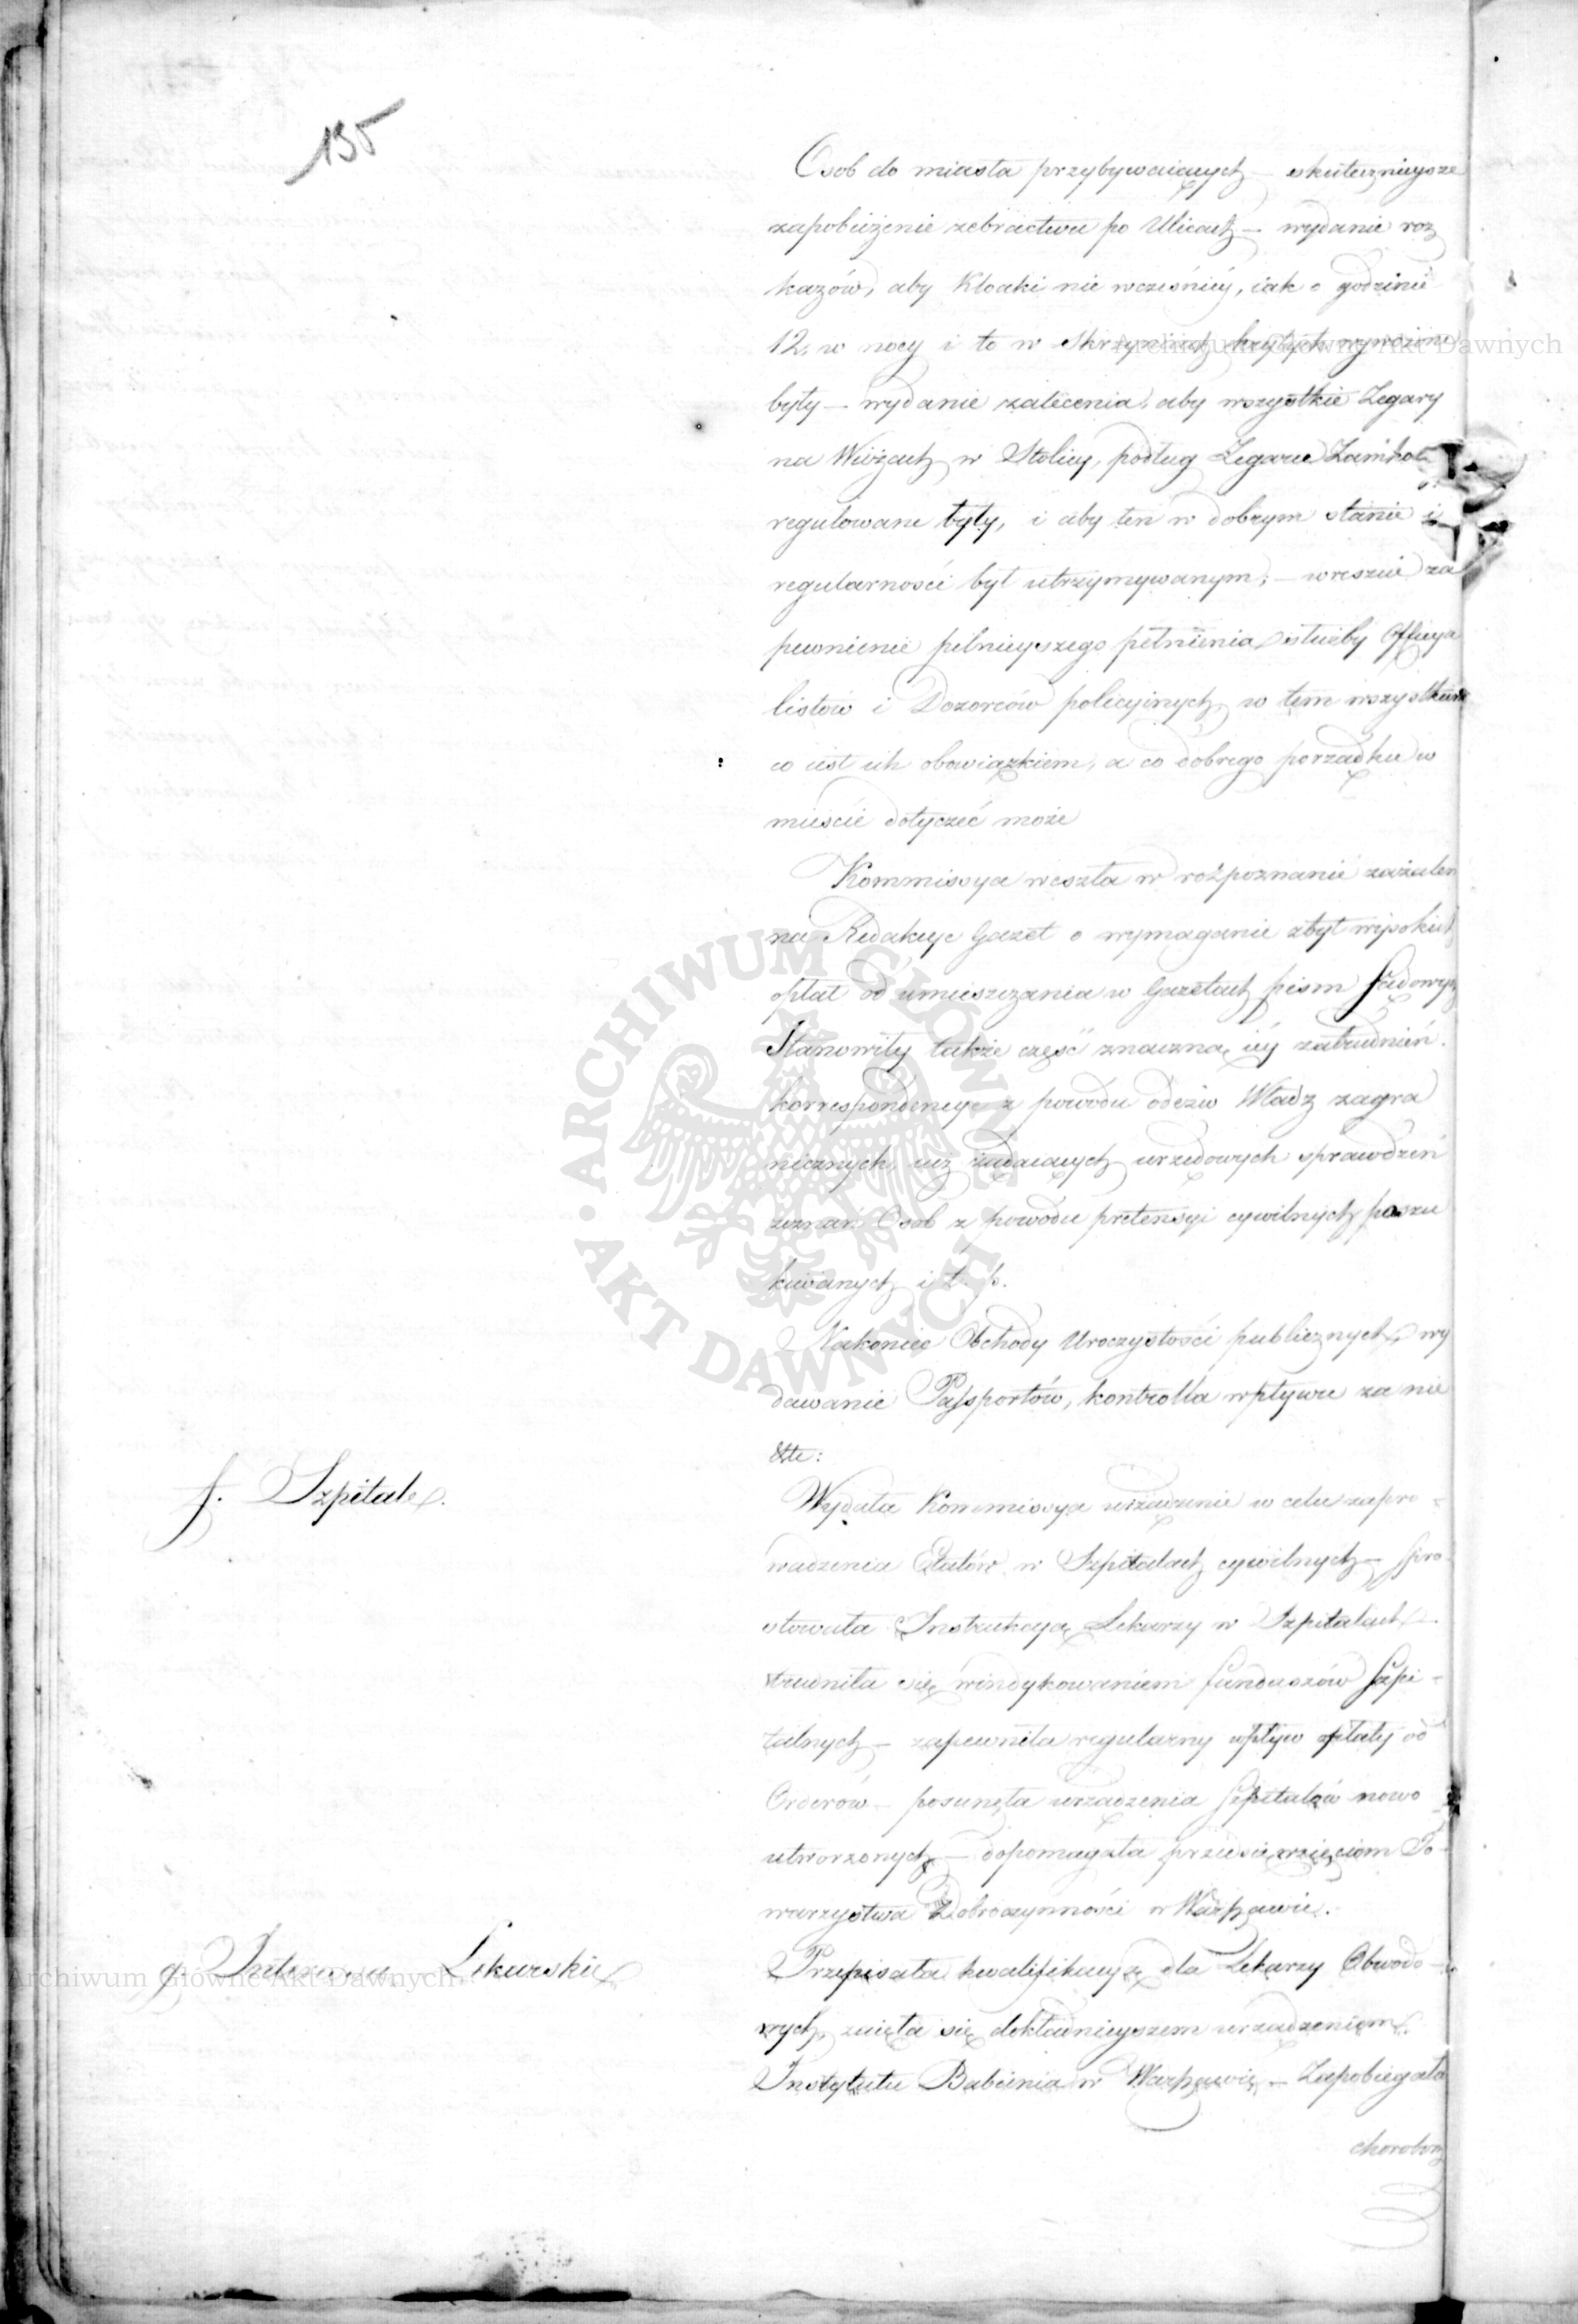 135
Osob do miasta przybywaiących – skutecznieysze
zapobieżenie żebractwu po Ulicach – wydanie roz
kazów, aby Kloaki nie wcześniéy, iak o godzinie
12. w nocy i to w skrzyniach krytych wywożone
były – wydanie zalecenia, aby wszystkie Zegary
na Wieżach w Stolicy, podług Zegaru Zamko
regulowane były, i aby ten w dobrym stanie i
regularności był utrzymywanym; – wreszcie za
pewnienie pełnieyszego pełnienia służby Officya
listów i Dozorców policyinych, w tem wszystkiem
co iest ich obowiązkiem, a co dobrego porządku w
mieście dotyczeć może
Kommissya weszła w rozpoznanie zażaleń
na Redakcye Gazet o wymaganie zbyt wysokich
opłat od umieszczania w Gazetach pism Sądowych
Stanowiły także część znaczną iéy zatrudnień.
korrespondencye z powodu odezw Władz zagra
nicznych, żądaiących urzędowych sprawdzeń
zeznań Osob z powodu pretensyi cywilnych poszu
kiwanych i t. p.
Nakoniec Obchody Uroczystości publicznych, wy
dawanie Passportów, kontrolla wpływu za nie
&te:
f. Szpitale.
Wydała Kommissya urządzenie w celu zapro-
wadzenia Etatów w Szpitalach cywilnych – spro
stowała Instrukcyą Lekarzy w Szpitalach –
trudniła się windykowaniem funduszów Szpi-
talnych – zapewniła regularny wpływ opłaty od
Orderów – posunęła urządzenia Szpitalów nowo
utworzonych – dopomagała przedsięwzięciom To-
warzystwa Dobroczynności w Warszawie.
g. Interessa Lekarskie
Przepisała kwalifikacyą dla Lekarzy Obwodo-
wych, zaięła się dokładnieyszem urządzeniem
Instytutu Babienia w Warszawie – Zapobiegała
chorobom
Archiwum Główne Akt Dawnych
Archiwum Główne Akt Dawnych
ARCHIWUM GŁÓWNE AKT DAWNYCH